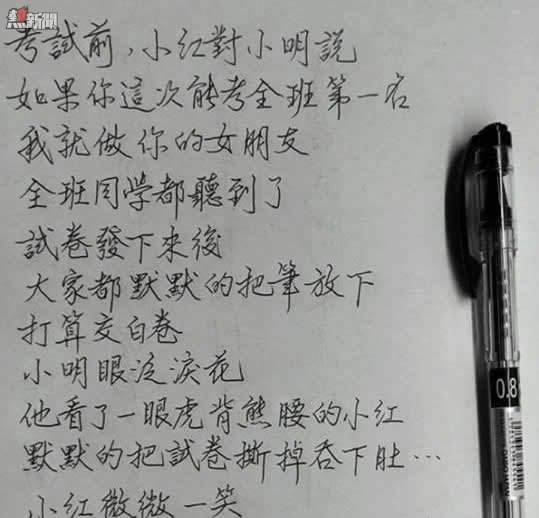 熱新聞
考試前，小红對小明説
如果你這次能考全班第一名
我就做你的女朋友
全班同学都聽到了
試卷發下來後
大家都默默的把筆放下
打算交白卷
小明眼泛淚花
他看了一眼虎背熊腰的小红
默默的把試卷撕掉吞下肚…
小红微微一笑
0.8